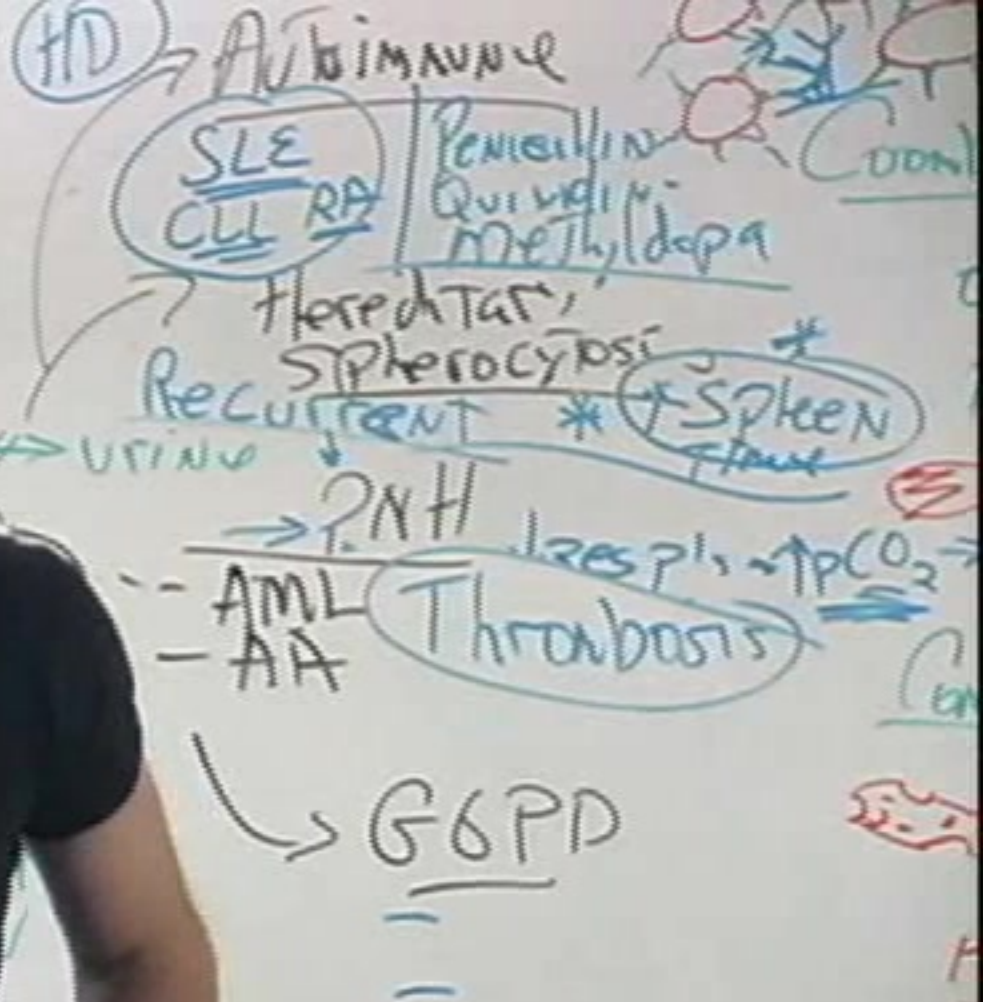 HD
Autoimmune
SLE
CLL RA
Penicillin
Quinidin
Methyldopa
Coom
Hereditary
Spherocytosi
Recurrent
* ↑ Spleen
*
↔ urine
→ PNH
↑pCO₂ →
-- AML
Thrombosis
- AA
G6PD